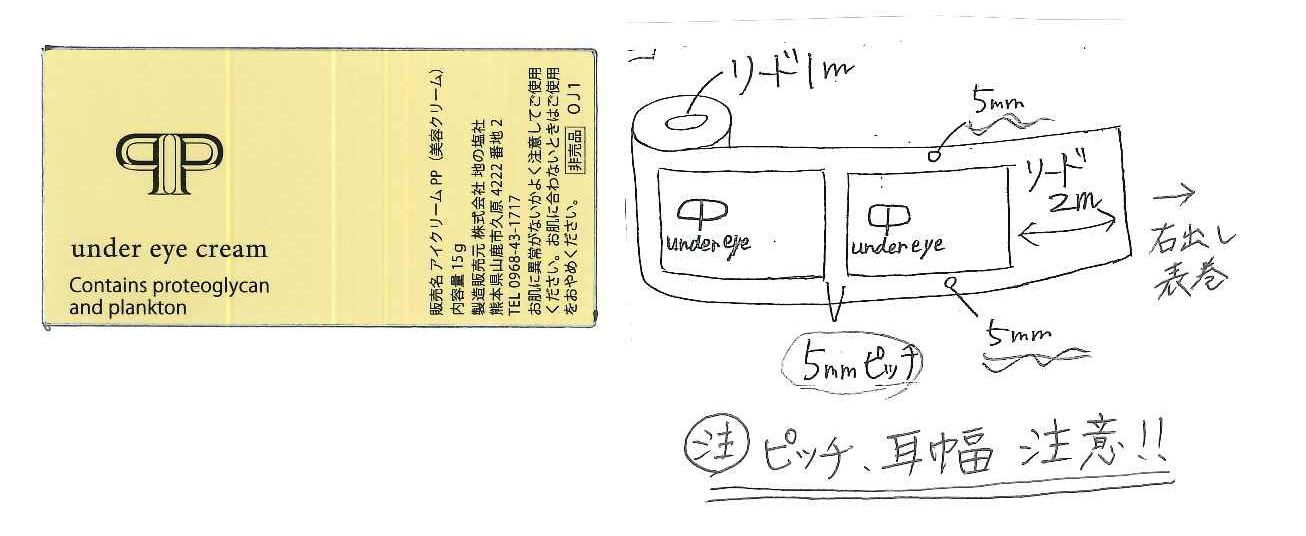 PP
under eye cream
Contains proteoglycan
and plankton
販売名 アイクリーム PP (美容クリーム)
内容量 15g
製造販売元 株式会社 地の塩社
熊本県山鹿市久原 4222 番地 2
TEL 0968-43-1717
お肌に異常がないかよく注意してご使用
ください。お肌に合わないときはご使用
をおやめください。 非売品 OJ1
リード1m
5mm
リード
2m
under eye
under eye
→
右出し
表巻
5mm ピッチ
5mm
注 ピッチ、耳幅 注意!!